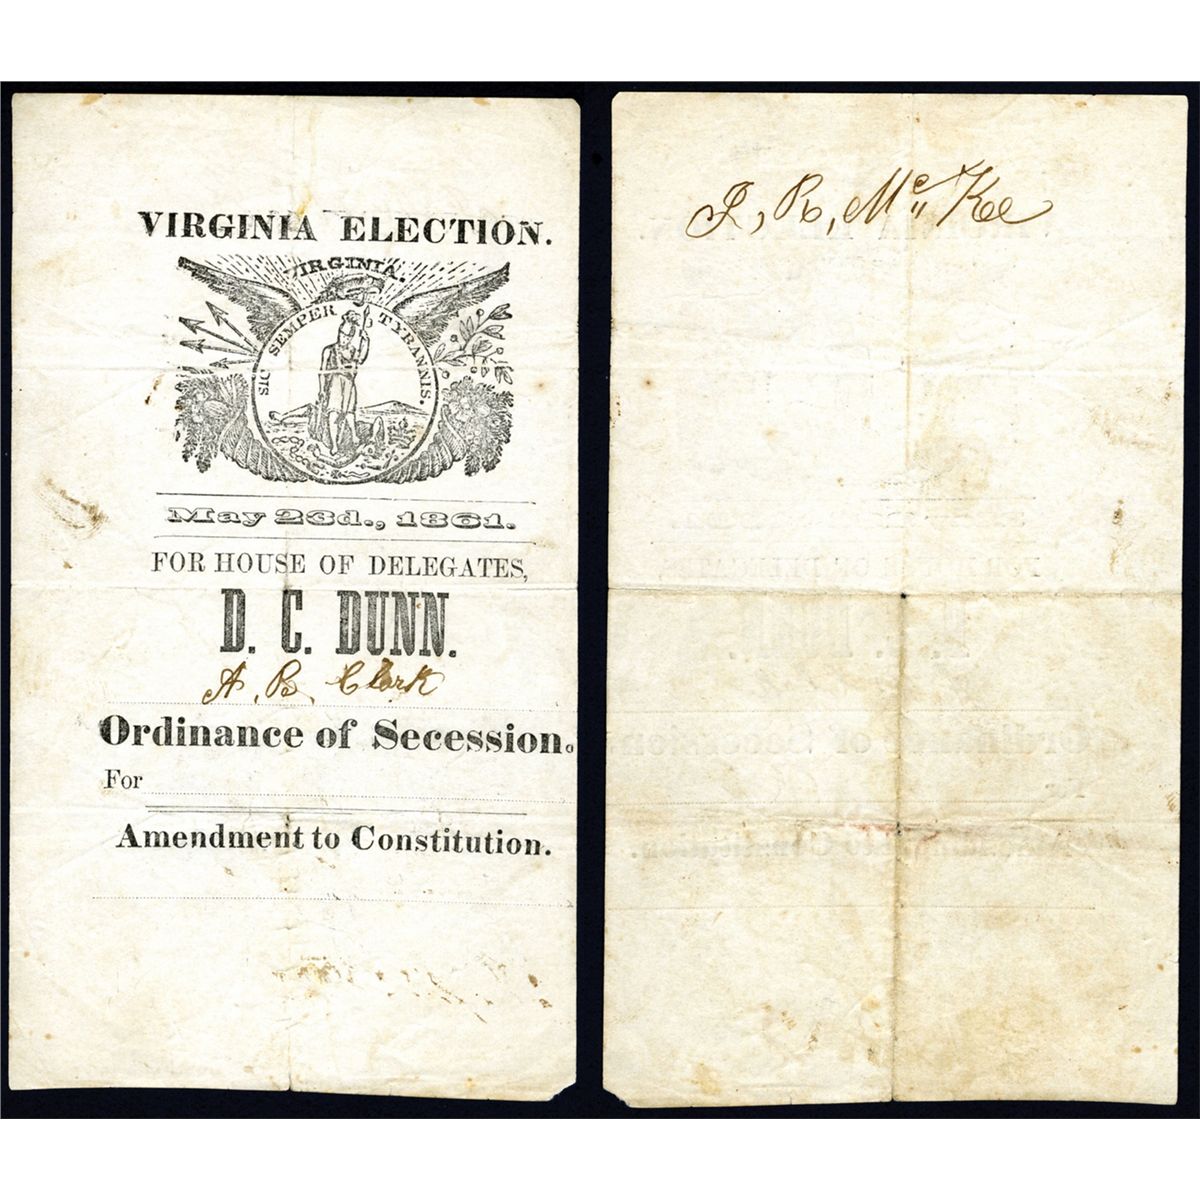 VIRGINIA ELECTION.
VIRGINIA.
SIC SEMPER TYRANNIS.
May 23d., 1861.
FOR HOUSE OF DELEGATES,
D. C. DUNN.
A. B. Clark
Ordinance of Secession.
For
Amendment to Constitution.
J, R, Mc Kee